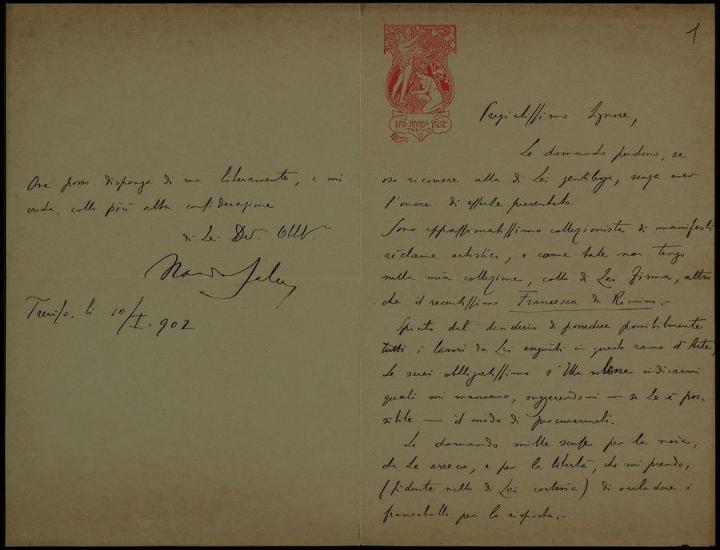 1
RAG. NANDO SALCE
TREVISO
Pregiatissimo Signore,
Le domando perdono, se
oso ricorrere alla di Lei gentilezza, senza aver
l'onore di esserle presentato.
Sono appassionatissimo collezionista di manifesti
réclame artistici, e come tale non tengo
nella mia collezione, colla di Lei firma, altro
che il recentissimo Francesca da Rimini.-
Spinto dal desiderio di possedere possibilmente
tutti i lavori da Lei eseguiti in questo ramo d'Arte,
Le sarei obbligatissimo s'Ella volesse indicarmi
quali mi mancano, suggerendomi — se Le è pos-
sibile — il modo di procurarmeli.
Le domando mille scuse per la noia,
che Le arreco, e per la libertà, che mi prendo,
(fidente nella di Lei cortesia) di accludere i
francobolli per la risposta.-
Ove posso disponga di me liberamente, e mi
creda, colla più alta considerazione
di Lei Dev. Obb.
Nando Salce
Treviso, li 10/I.902